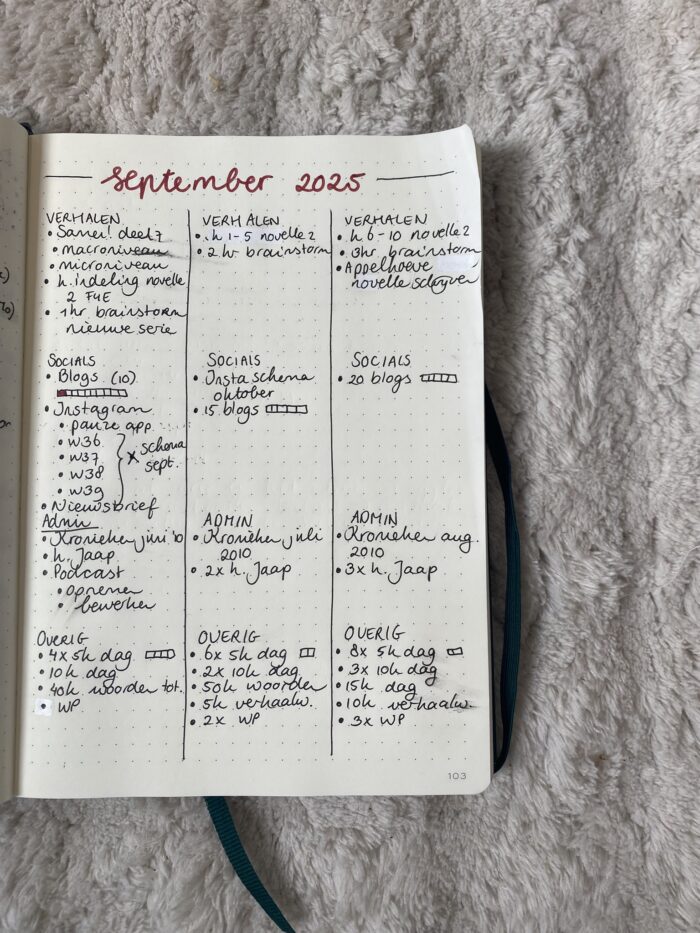 september 2025
VERHALEN
• Samen! deel 7
• macroniveau
• microniveau
• h. indeling novelle
2 F4E
• 1hr brainstorm
nieuwe serie
SOCIALS
• Blogs (10)
• Instagram
• pauze app.
• w36
• w37
• w38
• w39
x schema
sept.
• Nieuwsbrief
Admin
• Kronieken juni '10
• h. Jaap
• Podcast
• opnemen
• bewerken
OVERIG
• 4x 5k dag
• 10k dag
• 40k woorden tot.
• WP
VERHALEN
• h 1-5 novelle 2
• 2hr brainstorm
SOCIALS
• Insta schema
oktober
• 15 blogs
ADMIN
• Kronieken juli
2010
• 2x h. Jaap
OVERIG
• 6x 5k dag
• 2x 10k dag
• 50k woorden
• 5k verhaalw.
• 2x WP
VERHALEN
• h 6-10 novelle 2
• 3hr brainstorm
• Appelhoeve
novelle schrijven
SOCIALS
• 20 blogs
ADMIN
• Kronieken aug.
2010
• 3x h. Jaap
OVERIG
• 8x 5k dag
• 3x 10k dag
• 15k dag
• 10k verhaalw.
• 3x WP
103